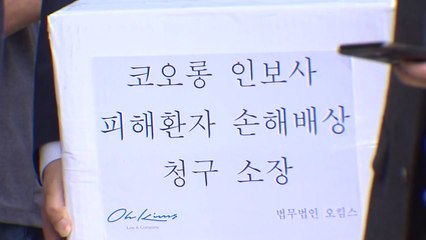 코오롱 인보사
피해환자 손해배상
청구 소장
OhKims
Law & Company
법무법인 오킴스